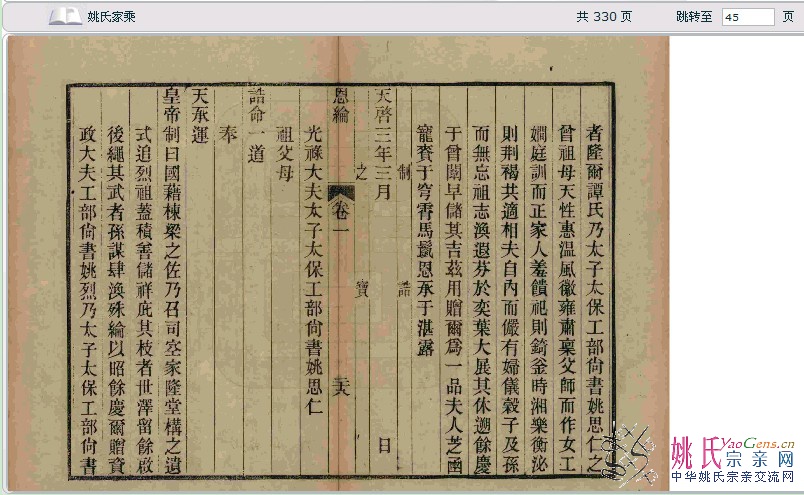 姚氏家乘
共 330 页
跳转至 45 页
者隆爾譚氏乃太子太保工部尚書姚思仁之
曾祖母天性惠温風徽雍肅稟父師而作女工
嫻庭訓而正家人羞饋祀則錡釜時湘樂衡泌
則荆褐共適相夫自內而儼有婦儀穀子及孫
而無忘祖志渙遐芬於奕葉大展其休遡餘慶
于曾閫早儲其吉茲用贈爾爲一品夫人芝函
寵賁于穹霄馬鬣恩承于湛露
制誥
天啓三年三月 日
之寶
恩綸 卷一
光祿大夫太子太保工部尚書姚思仁
祖父母
誥命一道
奉
天承運
皇帝制曰國藉棟梁之佐乃召司空家隆堂構之遺
式追烈祖蓋積善儲祥庇其枝者世澤留餘啟
後繩其武者孫謀肆渙殊綸以昭餘慶爾贈資
政大夫工部尚書姚烈乃太子太保工部尚書
姚氏 YaoGens.cn
宗亲网
中华姚氏宗亲交流网